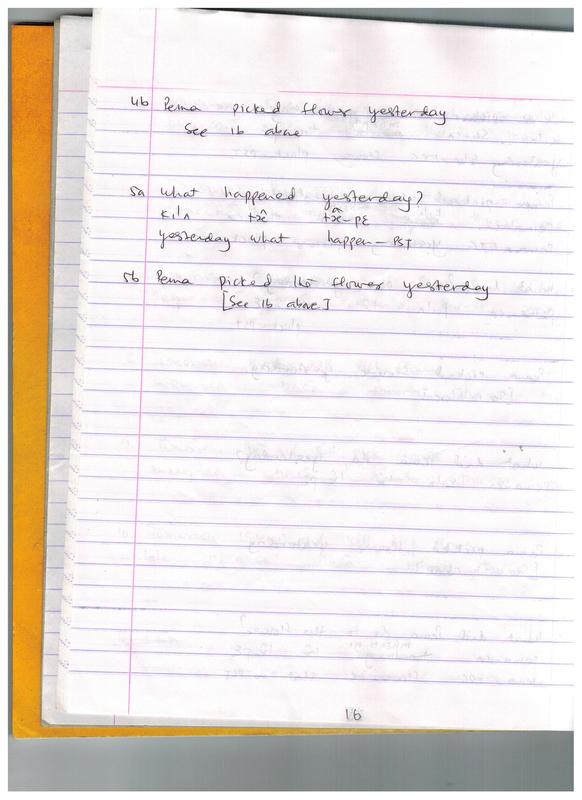 4b Pema picked flower yesterday
See 1b above
5a what happened yesterday?
yesterday what happen-PST
5b Pema picked flower yesterday
[See 1b above]
16